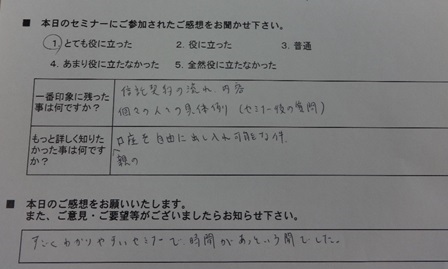 ■ 本日のセミナーにご参加されたご感想をお聞かせ下さい。
① とても役に立った 2. 役に立った 3. 普通
4. あまり役に立たなかった 5. 全然役に立たなかった
一番印象に残った
事は何ですか？
信託契約の流れ、内容
個々の人々の具体例（セミナー後の質問）
もっと詳しく知りた
かった事は何です
か？
口座を自由に出し入れ可能な件
親の
■ 本日のご感想をお願いいたします。
また、ご意見・ご要望等がございましたらお知らせ下さい。
すごくわかりやすいセミナーで時間があっという間でした。